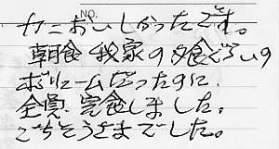 NO.
カニおいしかったです。
朝食 我家の夕食ぐらいの
ボリュームだったのに、
全員、完食しました。
ごちそうさまでした。